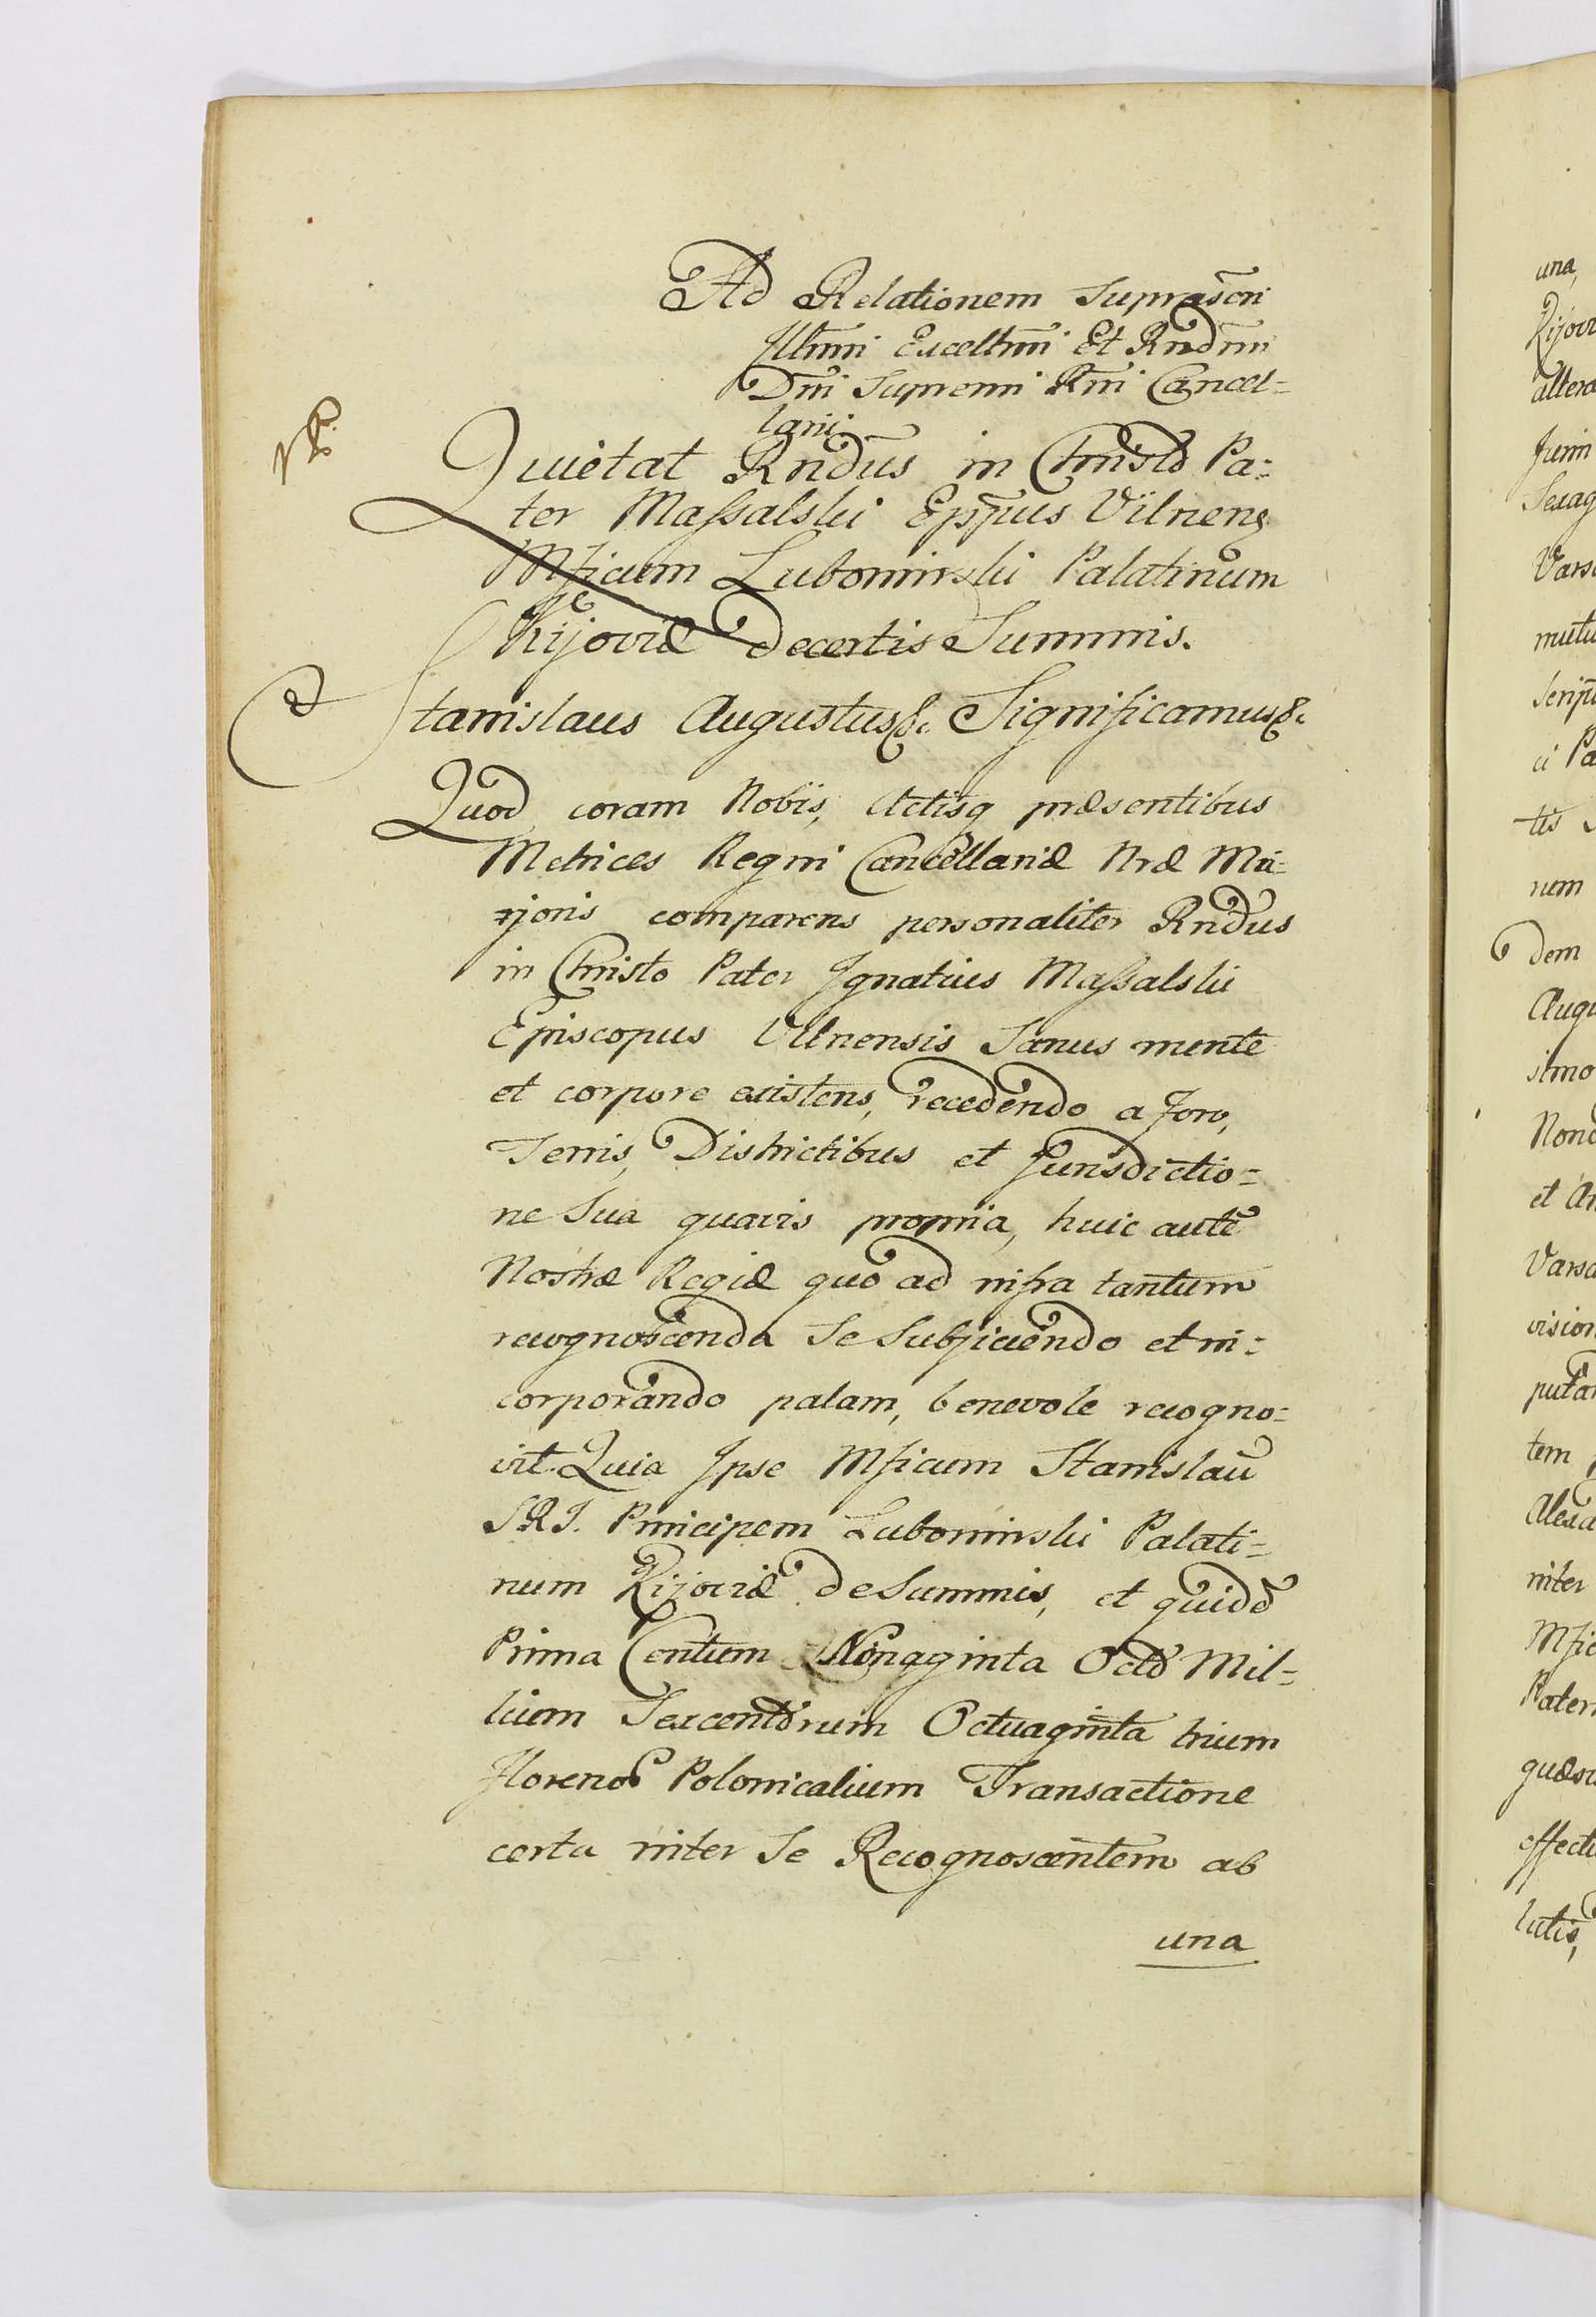 Ad Relationem Suprascri
Illmi Excellmi Et Rndmi
Dni Supremi Rni Cancel=
larii.
Quietat Rndus in Christo Pa=
ter Massalski Eppus Vilnens
Mficum Lubomirski Palatinum
Kijoviæ de certis Summis.
Stanislaus Augustus &c Significamus &c
Quod coram Nobis, Actisq præsentibus
Metrices Regni Cancellariæ Nræ Ma=
rjoris comparens personaliter Rndus
in Christo Pater Ignatius Massalski
Episcopus Vilnensis Sanus mente
et corpore existens, recedendo a Foro,
Terris, Districtibus et Jurisdictio=
ne Sua quavis propria, huic autē
Nostræ Regiæ quo ad infra tantum
recognoscenda Se Subjiciendo et in=
corporando palam, benevole recogno=
vit. Quia Ipse Mficum Stanislaū
S.R.J. Principem Lubomirski Palati=
num Kijoviæ de Summis, et quidē
Prima Centum Nonaginta Octo Mil=
lium Sexcentorum Octuaginta trium
Floreno Polonicalium Transactione
certa inter Se Recognoscentem ab
una
una,
Kijovi
altera
Junii
Sexag
Vars
mutu
Scrip
ci Pa
tis S
num
dem
Augu
simo
Nono
et An
Varsa
vision
puta
tem
Alexa
inter
Mfic
Pater
quæsi
effectu
lutis,